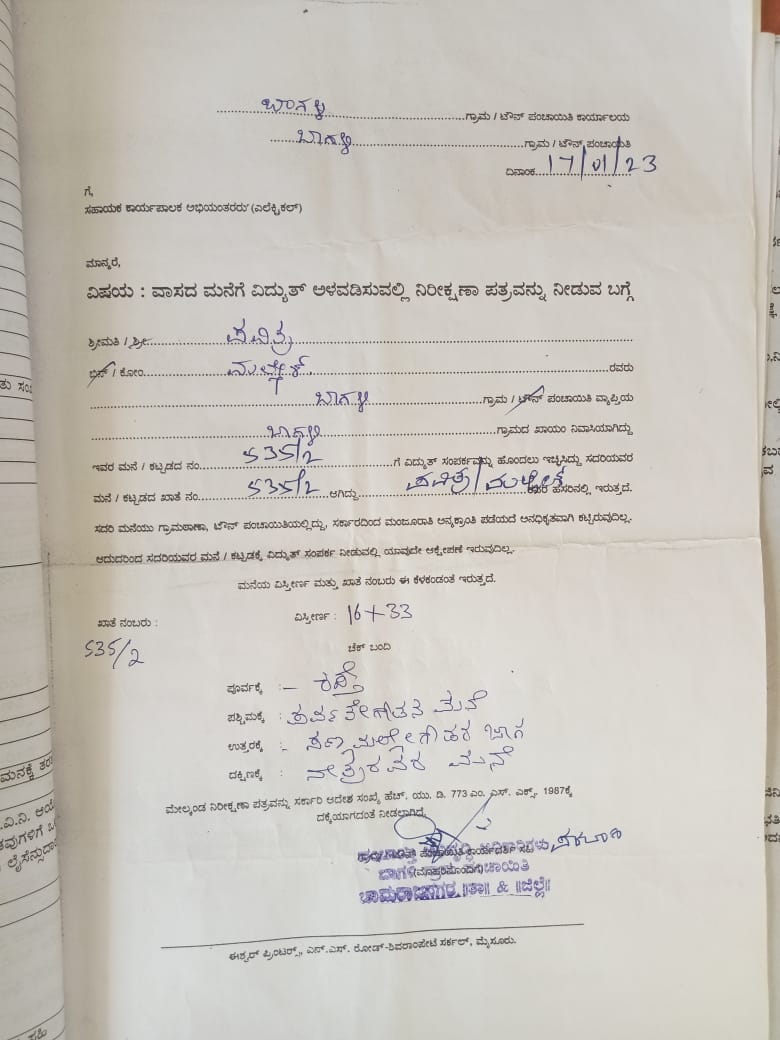 ಬಾಗಳಿ ಗ್ರಾಮ / ಟೌನ್ ಪಂಚಾಯಿತಿ ಕಾರ್ಯಾಲಯ
ಬಾಗಳಿ ಗ್ರಾಮ / ಟೌನ್ ಪಂಚಾಯಿತಿ
ದಿನಾಂಕ 17/01/23
ಗೆ,
ಸಹಾಯಕ ಕಾರ್ಯಪಾಲಕ ಅಭಿಯಂತರರು (ಎಲೆಕ್ಟ್ರಿಕಲ್)
ಮಾನ್ಯರೆ,
ವಿಷಯ : ವಾಸದ ಮನೆಗೆ ವಿದ್ಯುತ್ ಅಳವಡಿಸುವಲ್ಲಿ ನಿರೀಕ್ಷಣಾ ಪತ್ರವನ್ನು ನೀಡುವ ಬಗ್ಗೆ
ಶ್ರೀಮತಿ / ಶ್ರೀ. ಪವಿತ್ರ
ಬಿನ್ / ಕೋಂ. ಮಲ್ಲೇಶ್ ರವರು
ಬಾಗಳಿ ಗ್ರಾಮ / ಟೌನ್ ಪಂಚಾಯಿತಿ ವ್ಯಾಪ್ತಿಯ
ಬಾಗಳಿ ಗ್ರಾಮದ ಖಾಯಂ ನಿವಾಸಿಯಾಗಿದ್ದು
ಇವರ ಮನೆ / ಕಟ್ಟಡದ ನಂ. 535/2 ಗೆ ವಿದ್ಯುತ್ ಸಂಪರ್ಕವನ್ನು ಹೊಂದಲು ಇಚ್ಛಿಸಿದ್ದು ಸದರಿಯವರ
ಮನೆ / ಕಟ್ಟಡದ ಖಾತೆ ನಂ. 535/2 ಆಗಿದ್ದು ಪವಿತ್ರ/ಮಲ್ಲೇಶ್ ರವರ ಹೆಸರಿನಲ್ಲಿ ಇರುತ್ತದೆ.
ಸದರಿ ಮನೆಯು ಗ್ರಾಮಠಾಣಾ, ಟೌನ್ ಪಂಚಾಯಿತಿಯಲ್ಲಿದ್ದು, ಸರ್ಕಾರದಿಂದ ಮಂಜೂರಾತಿ ಅನ್ಯಕ್ರಾಂತಿ ಪಡೆಯದೆ ಅನಧಿಕೃತವಾಗಿ ಕಟ್ಟಿರುವುದಿಲ್ಲ.
ಆದುದರಿಂದ ಸದರಿಯವರ ಮನೆ / ಕಟ್ಟಡಕ್ಕೆ ವಿದ್ಯುತ್ ಸಂಪರ್ಕ ನೀಡುವಲ್ಲಿ ಯಾವುದೇ ಆಕ್ಷೇಪಣೆ ಇರುವುದಿಲ್ಲ.
ಮನೆಯ ವಿಸ್ತೀರ್ಣ ಮತ್ತು ಖಾತೆ ನಂಬರು ಈ ಕೆಳಕಂಡಂತೆ ಇರುತ್ತದೆ.
ಖಾತೆ ನಂಬರು : ವಿಸ್ತೀರ್ಣ : 16+33
535/2 ಚೆಕ್ ಬಂದಿ
ಪೂರ್ವಕ್ಕೆ :- ರಸ್ತೆ
ಪಶ್ಚಿಮಕ್ಕೆ : ಮನೆ
ಉತ್ತರಕ್ಕೆ :- ಜಾಗ
ದಕ್ಷಿಣಕ್ಕೆ : ಮನೆ
ಮೇಲ್ಕಂಡ ನಿರೀಕ್ಷಣಾ ಪತ್ರವನ್ನು ಸರ್ಕಾರಿ ಆದೇಶ ಸಂಖ್ಯೆ ಹೆಚ್. ಯು. ಡಿ. 773 ಎಂ. ಎಸ್. ಎಕ್ಸ್. 1987ಕ್ಕೆ
ದಕ್ಕೆಯಾಗದಂತೆ ನೀಡಲಾಗಿದೆ.
ಚಾಮರಾಜನಗರ ||ತಾ|| & ||ಜಿಲ್ಲೆ||
ಈಶ್ವರ್ ಪ್ರಿಂಟರ್‍ಸ್, ಎನ್.ಎಸ್. ರೋಡ್-ಶಿವರಾಂಪೇಟೆ ಸರ್ಕಲ್, ಮೈಸೂರು.